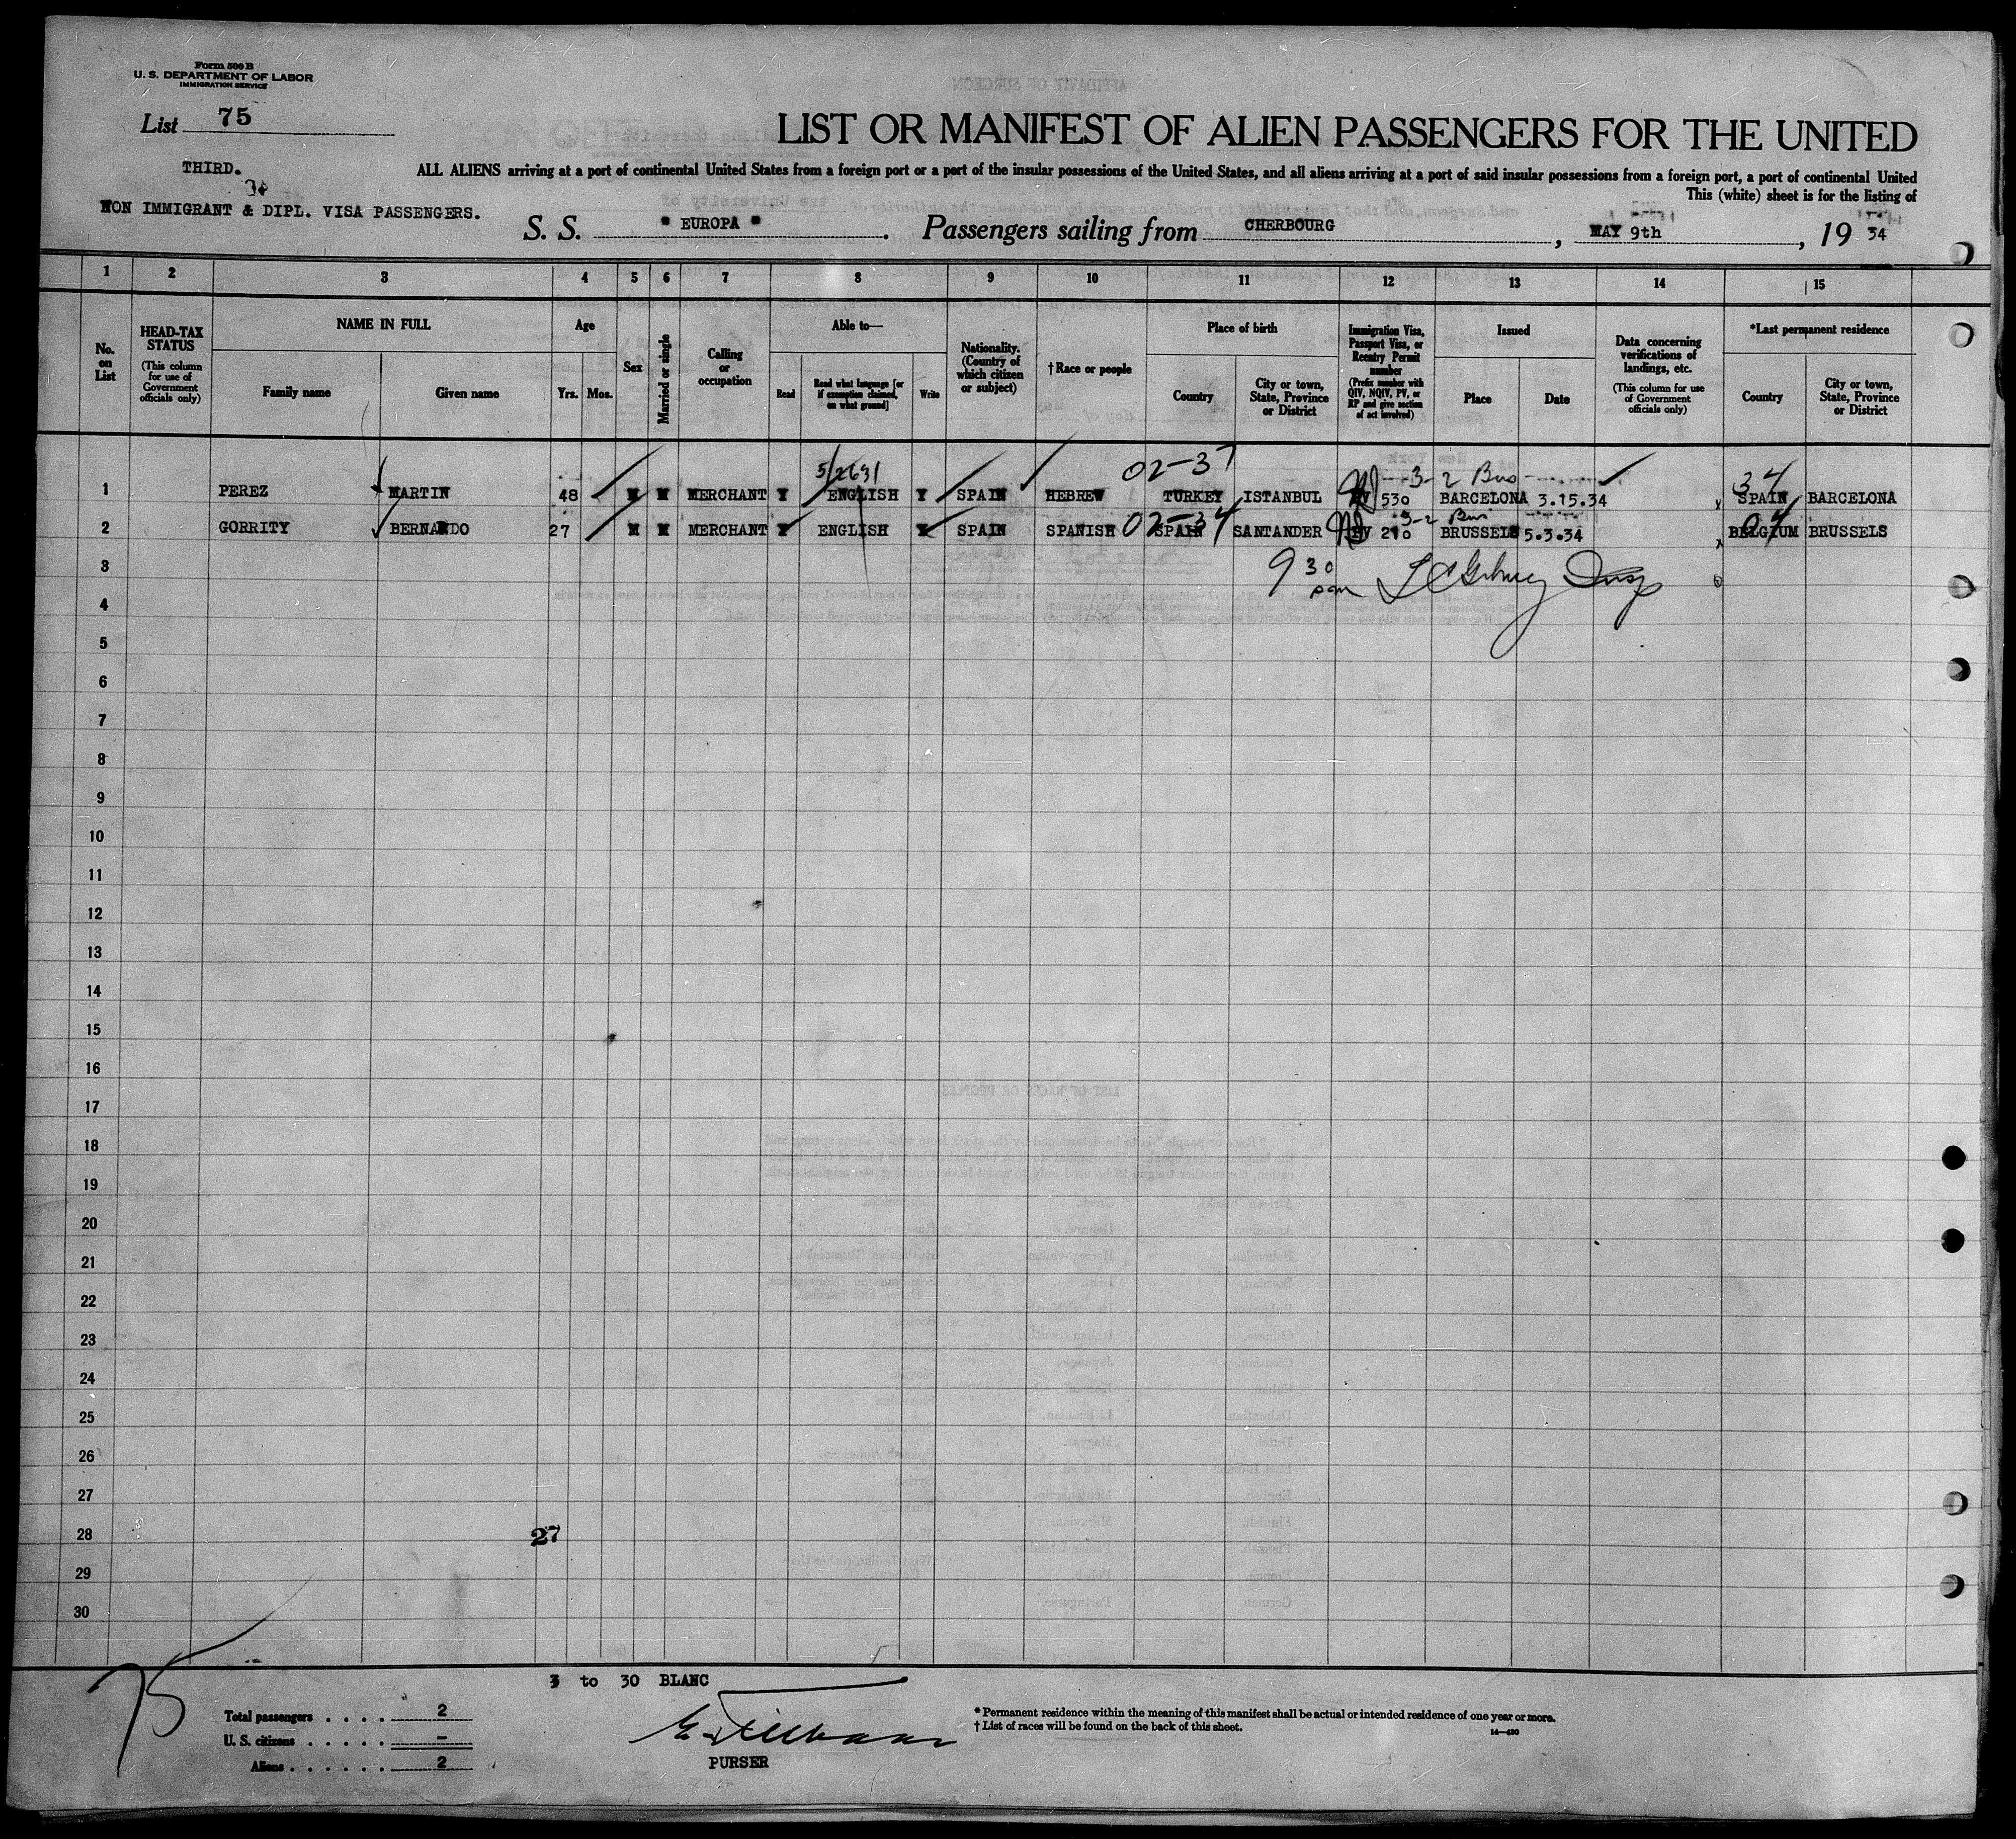 Form 500 B
U. S. DEPARTMENT OF LABOR
IMMIGRATION SERVICE
List 75
LIST OR MANIFEST OF ALIEN PASSENGERS FOR THE UNITED
THIRD.
ALL ALIENS arriving at a port of continental United States from a foreign port or a port of the insular possessions of the United States, and all aliens arriving at a port of said insular possessions from a foreign port, a port of continental United
This (white) sheet is for the listing of
NON IMMIGRANT & DIPL. VISA PASSENGERS.
S. S. " EUROPA " . Passengers sailing from CHERBOURG , MAY 9th , 19 34
1 2 3 4 5 6 7 8 9 10 11 12 13 14 15
No. on List
HEAD-TAX STATUS
(This column for use of Government officials only)
NAME IN FULL
Family name
Given name
Age
Yrs. Mos.
Sex
Married or single
Calling or occupation
Able to—
Read
Read what language [or if exemption claimed, on what ground]
Write
Nationality. (Country of which citizen or subject)
† Race or people
Place of birth
Country
City or town, State, Province or District
Immigration Visa, Passport Visa, or Reentry Permit number
(Prefix number with QIV, NQIV, PV, or RP and give section of act involved)
Issued
Place
Date
Data concerning verifications of landings, etc.
(This column for use of Government officials only)
*Last permanent residence
Country
City or town, State, Province or District
02-37
3-2 Bus
34
1 PEREZ MARTIN 48 M M MERCHANT Y ENGLISH Y SPAIN HEBREW TURKEY ISTANBUL PV 530 BARCELONA 3.15.34 SPAIN BARCELONA
02-34
3-2 Bus
04
2 GORRITY BERNANDO 27 M M MERCHANT Y ENGLISH Y SPAIN SPANISH SPAIN SANTANDER PV 210 BRUSSELS 5.3.34 BELGIUM BRUSSELS
3
9 30 pm
4
5
6
7
8
9
10
11
12
13
14
15
16
17
18
19
20
21
22
23
24
25
26
27
28 27
29
30
75
3 to 30 BLANC
Total passengers . . . . 2
U. S. citizens . . . . . –
Aliens . . . . . . 2
PURSER
* Permanent residence within the meaning of this manifest shall be actual or intended residence of one year or more.
† List of races will be found on the back of this sheet.
14—430